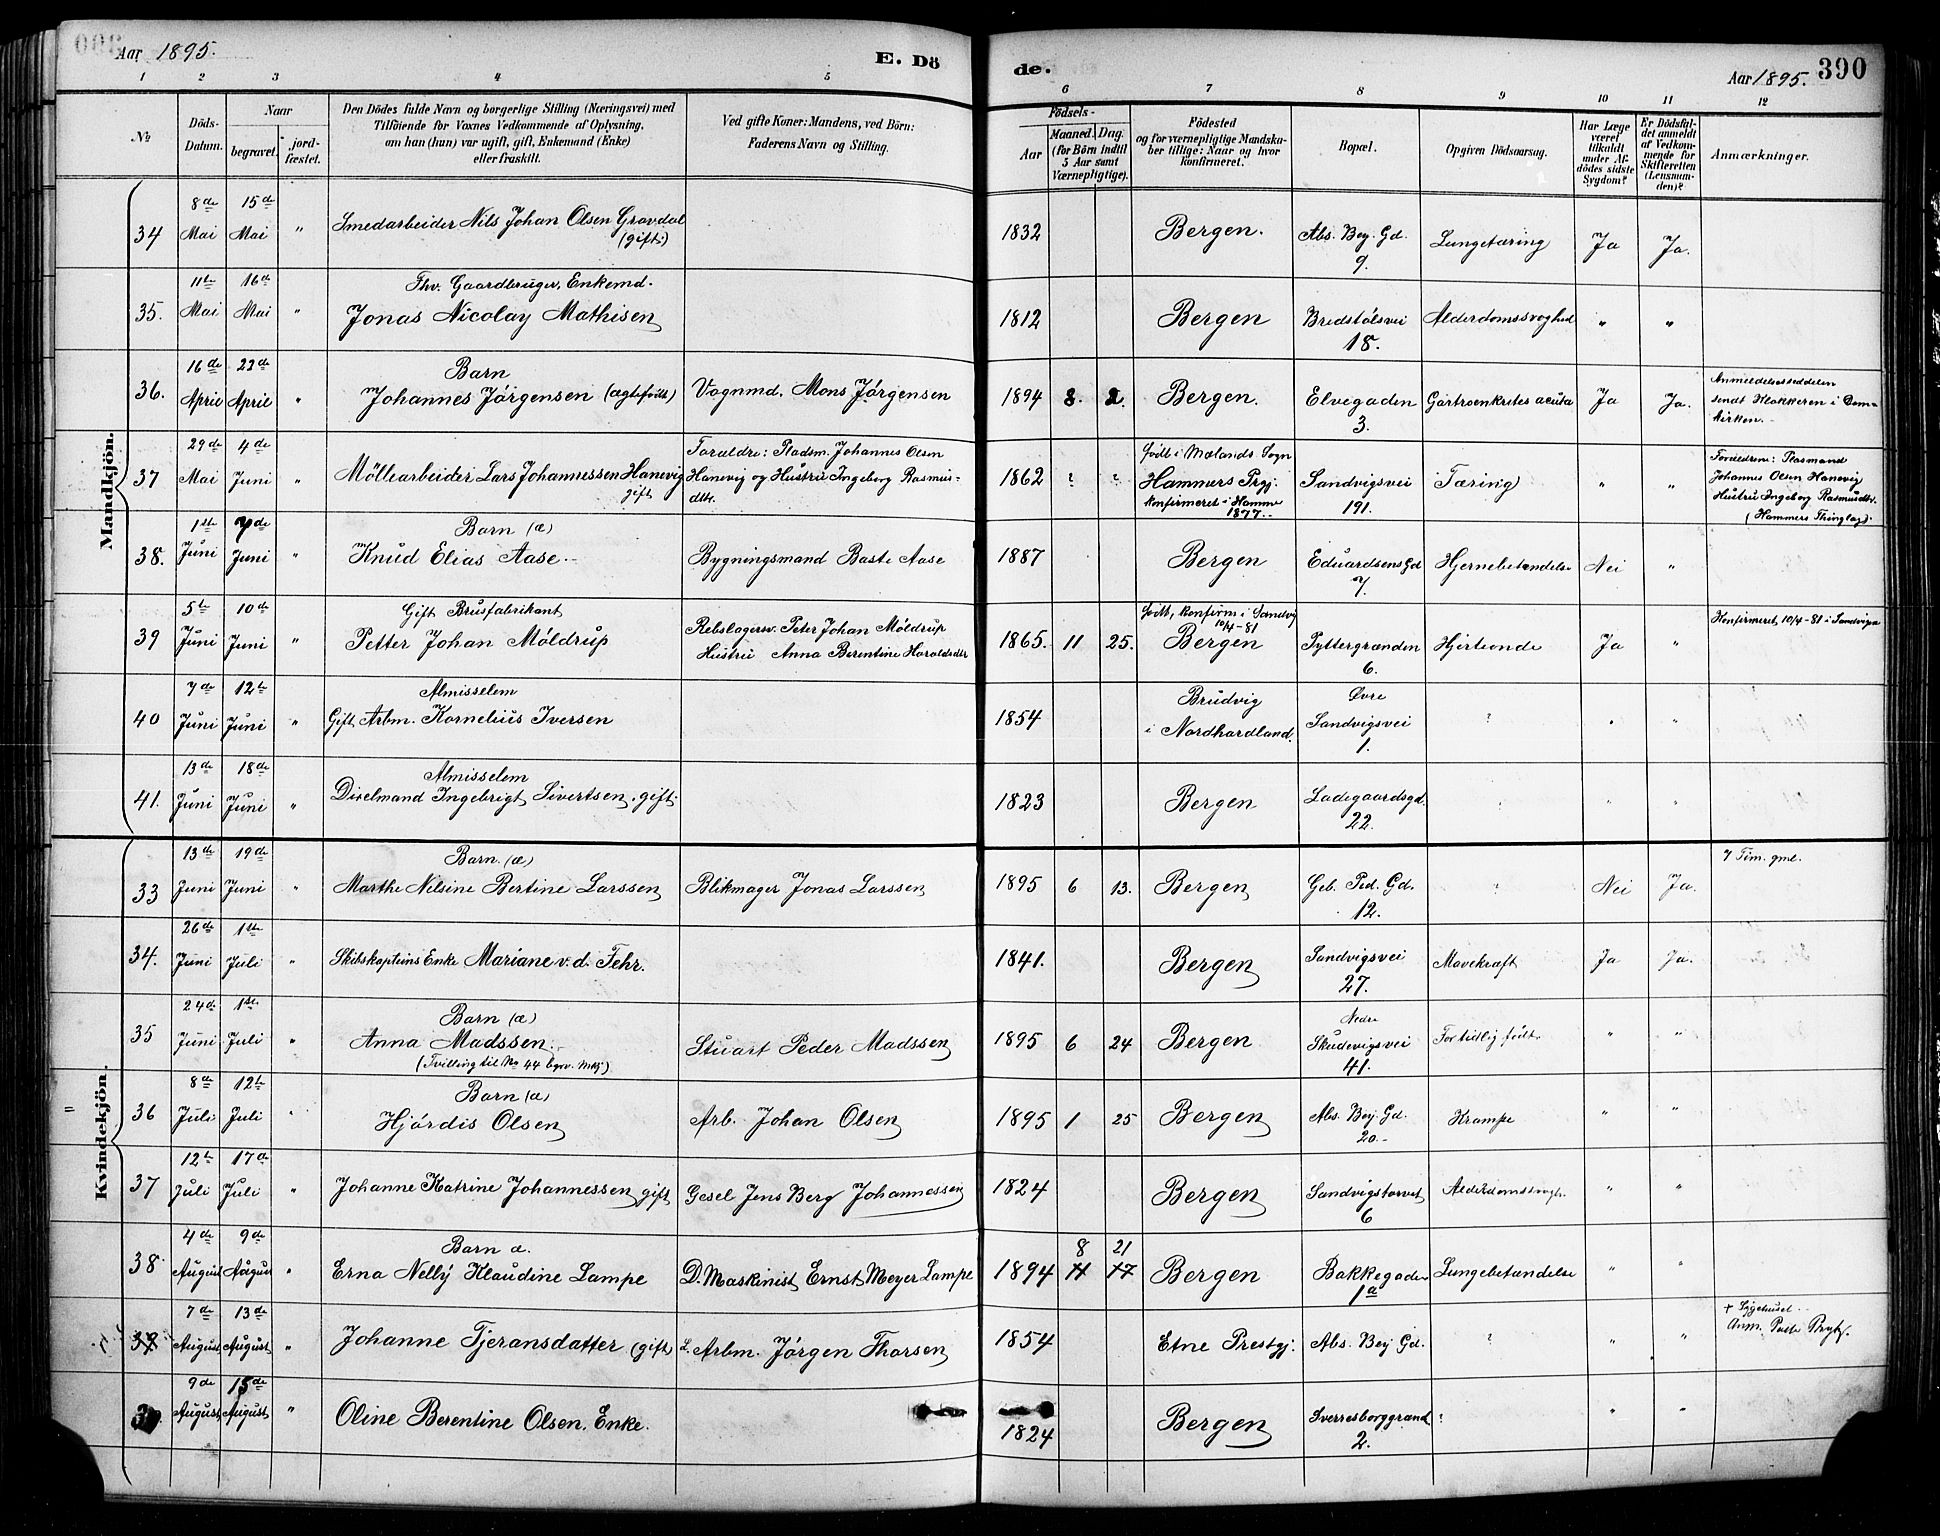 Aar 1895.
E. Dö
de.
Aar 1895.
390
1 2 3 4 5 6 7 8 9 10 11 12
No
Döds-Datum.
Naar
begravet.
jord-fæstet.
Den Dödes fulde Navn og borgerlige Stilling (Næringsvei) med
Tilföiende for Voxnes Vedkommende af Oplysning,
om han (hun) var ugift, gift, Enkemand (Enke)
eller fraskilt.
Ved gifte Koner: Mandens, ved Börn:
Faderens Navn og Stilling.
Födsels-
Aar
Maaned. Dag.
(for Börn indtil
5 Aar samt
Værnepligtige).
Födested
og for værnepligtige Mandska-
ber tillige: Naar og hvor
konfirmeret.
Bopæl.
Opgiven Dödsaarsag.
Har Læge
været
tilkaldt
under Af-
dödes sidste
Sygdom?
Er Dödsfal-
det anmeldt
af Vedkom-
mende for
Skifteretten
(Lensman-
den)?
Anmærkninger.
Mandkjön.
34 8de Mai 15de Mai " Smedarbeider Nils Johan Olsen Gravdal (gift) 1832 Bergen. Abs. Bey. Gd. 9. Lungetæring Ja Ja.
35. 11te Mai 16de Mai " Fhv. Gaardbruger, Enkemd. Jonas Nicolay Mathisen 1812 Bergen Bredstölsvei 18. Alderdomssvaghed " "
36. 16de April 22de April " Barn Johannes Jörgensen (ægtefödt) Vognmd. Mons Jörgensen 1894 8. 2. Bergen. Elvegaden 3. Gastroenkrites acuta Ja Ja. Anmeldelsesseddelen sendt Klokkeren i Dom-kirken.
37 29de Mai 4de Juni " Möllearbeider Lars Johannessen Hanevig gift Forældre: Pladsm. Johannes Olsen Hanevig og Hustru Ingeborg Rasmus-dtr. 1862 ? ? født i Mælands Sogn Hammers Prgj. konfirmeret i Hammer 1877. Sandvigsvei 191. Tæring " " Forældrene: Plasmand Johannes Olsen Hanevig Hustru Ingeborg Rasmusdtr. (Hammers Thinglag).
38. 1ste Juni 7de Juni " Barn (æ) Knud Elias Aase. Bygningsmand Baste Aase 1887 Bergen Eduardsens Gd 7. Hjernebetændelse Nei "
39 5te Juni 10de Juni " Gift Brusfabrikant Petter Johan Möldrup Rebslagersv. Peter Johan Möldrup Hustru Anna Berentine Haroldsdtr 1865. 11 25. født, konfirm i Sandvig 10/4-81 Bergen Pyttergrænden 6. Hjerteonde Ja " Konfirmeret 10/4-81 i Sandvigen
40 7de Juni 12te Juni " Almisselem Gift Arbm. Kornelius Iversen 1854 Brudvig i Nordhordland. Øvre Sandvigsvei 1. ? " "
41. 13de Juni 18de Juni " Almisselem Dixelmand Ingebrigt Sivertsen. gift. 1823 Bergen Ladegaardsgd. 22. " " "
Kvindekjön.
33 13de Juni 19de Juni " Barn. (æ) Marthe Nilsine Bertine Larssen Blikmager Jonas Larssen 1895 6 13. Bergen Geb. Ped. Gd. 12. " Nei Ja. 7 Tim. gml.
34. 26de Juni 1ste Juli " Skibskapteins Enke Mariane v. d. Fehr. 1841. Bergen Sandvigsvei 27. Mavekræft Ja Ja.
35 24de Juni 1ste Juli " Barn (æ) Anna Madssen. (Tvilling til No 44 bgrv. Mkj) Stuart Peder Madssen 1895 6 24 Bergen Nedre Skudevigsvei 41. For tidlig født. " "
36 8de Juli 12te Juli " Barn (æ) Hjördis Olsen Arb. Johan Olsen 1895 1 25 Bergen Abs. Bey Gd. 20. Krampe " "
37 12te Juli 17de Juli " Johanne Katrine Johannessen gift Gesel Jens Berg Johannessen 1824 Bergen Sandvigstorvet 6 Alderdomssvagh. " "
38 4de August 9de August " Barn æ. Erna Nelly Klaudine Lampe D. Maskinist Ernst Meyer Lampe 1894 8 11 21 17 Bergen Bakkegaden 1a Lungebetændelse " "
39 7de August 13de August " Johanne Tjeransdatter (gift) L. Arbm. Jörgen Thorsen 1854 Etne Prestgj. Abs. Bey Gd. ? " " + Sygehuset
9de August 15de August " Oline Berentine Olsen, Enke. 1824 Bergen Sverresborggrand 2. ? " "